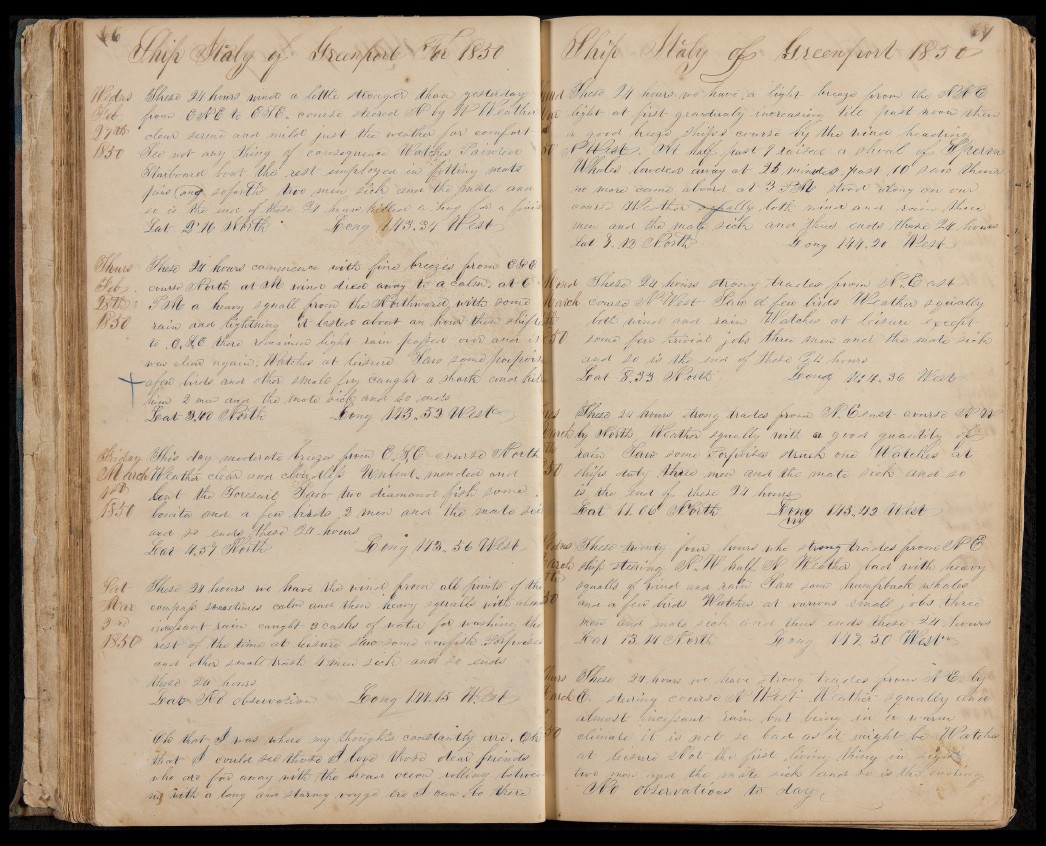 66
Ship Italy of Greenport For 1850
Wedns These 24 hours wind a little stronger than yesterday
Feb from ENE to ESE. course steered N by W Weather
27th clear serene and mild just the weather for comfort
1850 See not any thing of consequence Watches Painted
Starboard boat the rest employed in
two men sick and the mate and
so is the end of these 24 hours killed a hog for a
Lat 2.16 North Long 143.34 West
Thurs These 24 hours commence with fine breezes from ESE
Feb course North at M wind died away to a calm. at 6
28th PM a heavy squall from the Northward with some
1850 rain and lightning it lasted about an hour then shifted
to ESE there remained light rain passed over and it
was clear again. Watches at leisure Saw some porpoises
a few birds and other small fry caught a shark and
him 2 men and the mate sick and so ends
Lat 3.40 North Long 143.52 West
Friday This day moderate breezes from ESE course North
March Weather clear and cloudy Unbent, mended and
1st bent the Foresail Saw two diamond fish some
1850 bonita and a few birds 2 men and the mate
and so ends these 24 hours
Lat 4.57 North Long 143.56 West
Sat These 24 hours we have the wind from all points of the
Mar compass sometimes calm and then heavy squalls with almost
2nd incessant rain caught 9 casks of water for washing the
1850 rest of the time at leisure Saw some Porpoises
and other small trash 4 men sick and so ends
these 24 hours
Lat No observation Long 144.15 West
Oh that I was where my thoughts constantly are. Oh
that I could see those I love those dear friends
who are far away with the broad ocean rolling between
us with a long and stormy voyge ere I can be there
67
Ship Italy of Greenport 1850
These 24 hours we have a light breeze from the NNE
light at first gradually increasing till past noon then
a good breeze Ships course by the wind heading
N West. At half past 7 raised a shoal of Sperm
Whales lowered away at 25 minutes past 10 saw them
no more came aboard at 3 PM stood along on our
course Weather squally both wind and rain three
men and the mate sick and thus ends these 24 hours
Lat 7.12 North Long 144.20 West
These 24 hours strong trades from N. East
March course N West Saw a few birds Weather squally
both wind and rain Watches at leisure except
50 some few trivial jobs three men and the mate sick
and so is the end of these 24 hours
Lat 8.33 North Long 144.36 West
These 24 hours strong trades from N. East course NW
by North Weather squally with a good quantity of
rain Saw some Porpoises struck one Watches at
50 ships duty three men and the mate sick and so
is the end of these 24 hours
Lat 11.06 North Long 143.42 West
These twenty four hours who strong trades from N E
ship steering N. W half N Weather fair with heavy
squalls of wind and rain Saw some humpback whales
50 and a few birds Watches at various small jobs three
men and mate sick and thus ends these 24 hours
Lat 13.14 North Long 147.30 West
These 24 hours we have strong trades from NE by
E. steering course N West Weather squally and
almost incessant rain but being in a warm
50 climate it is not so bad as it might be Watches
at leisure Not the first living thing in sight
two men and the mate sick and so is the ending
No observations to day